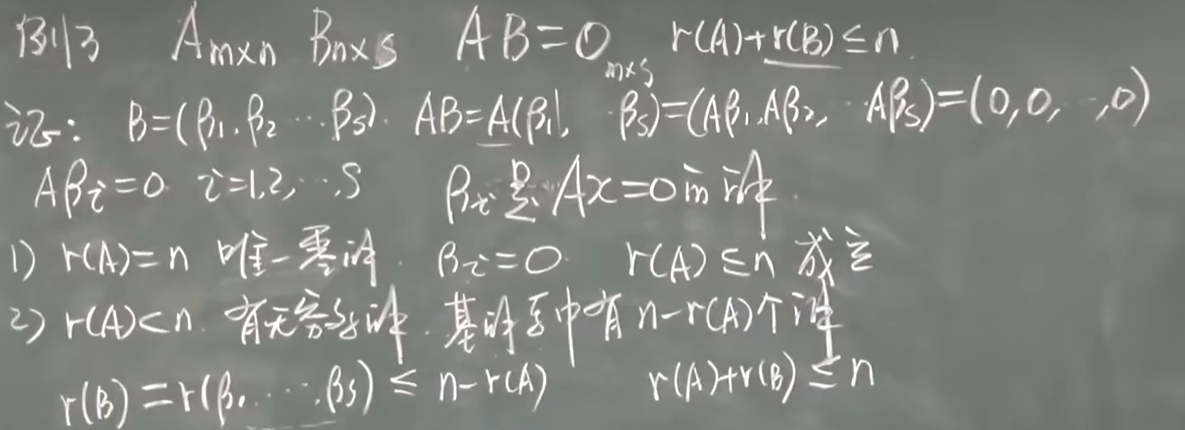 例3 Am×n Bn×s AB=0m×s r(A)+r(B)≤n
证: B=(β1,β2…βs). AB=A(β1, …βs)=(Aβ1,Aβ2,…Aβs)=(0,0,…,0)
Aβi=0 i=1,2,…,s βi是Ax=0的解.
1) r(A)=n 唯一零解. βi=0. r(A)≤n 成立
2) r(A)<n. 有无穷多解. 基解系中有n-r(A)个解
r(B)=r(β1…βs)≤n-r(A) r(A)+r(B)≤n